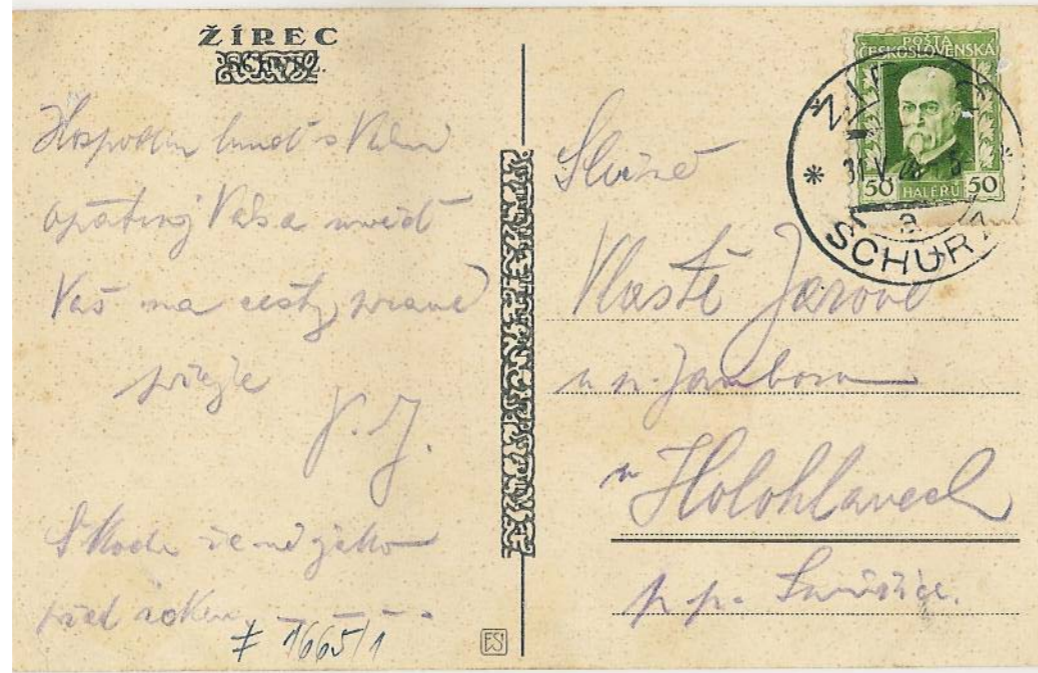 ŽÍREC
Hospodin
opatruj Vás a
Váš na cesty pravé
přeje
J. J.
Škoda že né jako
před rokem
# 1665/1
FS
POŠTA
ČESKOSLOVENSKÁ
50 HALÉŘŮ 50
31.V.28
a
SCHURZ
Slečně
Vlastě Jarové
u p. Jambora
v Holohlavech
p. p. Smiřice.